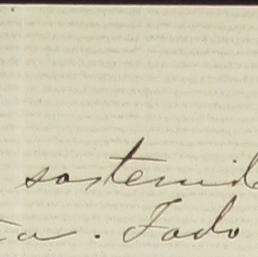 sostenid
ta. Todo